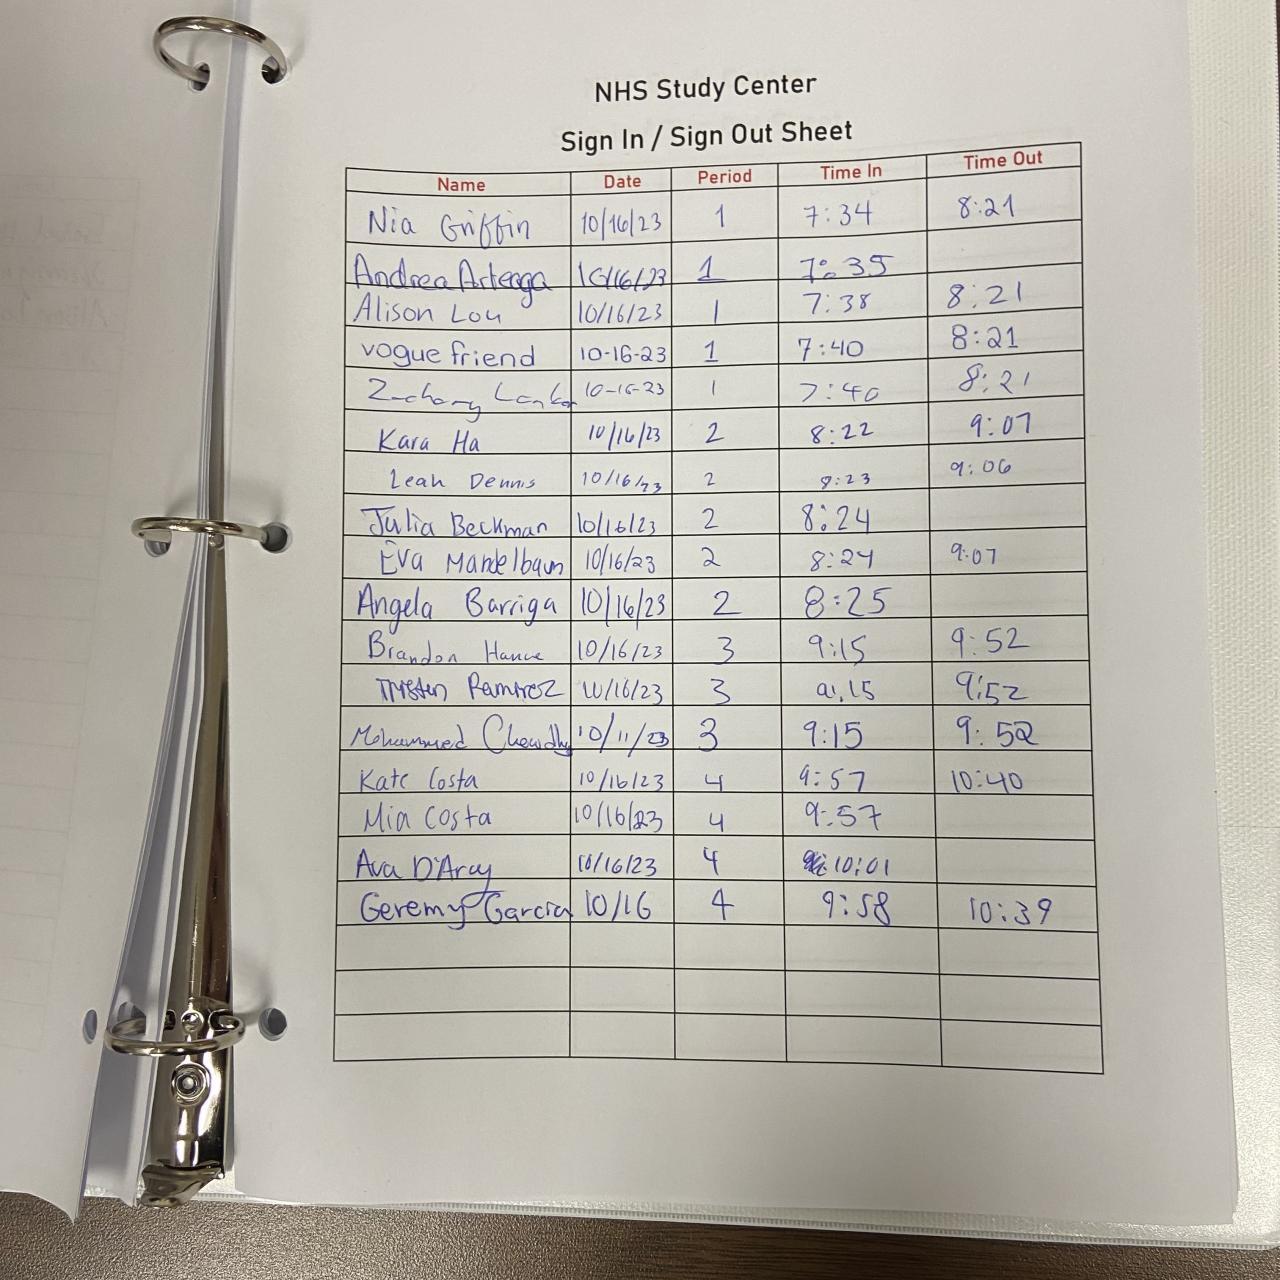 NHS Study Center
Sign In / Sign Out Sheet
Name Date Period Time In Time Out
Nia Griffin 10/16/23 1 7:34 8:21
Andrea Arteaga 10/16/23 1 7:35
Alison Lou 10/16/23 1 7:38 8:21
vogue friend 10-16-23 1 7:40 8:21
Zachary 10-16-23 1 7:40 8:21
Kara Ha 10/16/23 2 8:22 9:07
Leah Dennis 10/16/23 2 8:23 9:06
Julia Beckman 10/16/23 2 8:24
Eva Mandelbaum 10/16/23 2 8:24 9:07
Angela Barriga 10/16/23 2 8:25
Brandon 10/16/23 3 9:15 9:52
Tristen Ramirez 10/16/23 3 9:15 9:52
Mohammed 10/11/23 3 9:15 9:52
Kate Costa 10/16/23 4 9:57 10:40
Mia Costa 10/16/23 4 9:57
Ava D'Arcy 10/16/23 4 10:01
Geremy Garcia 10/16 4 9:58 10:39